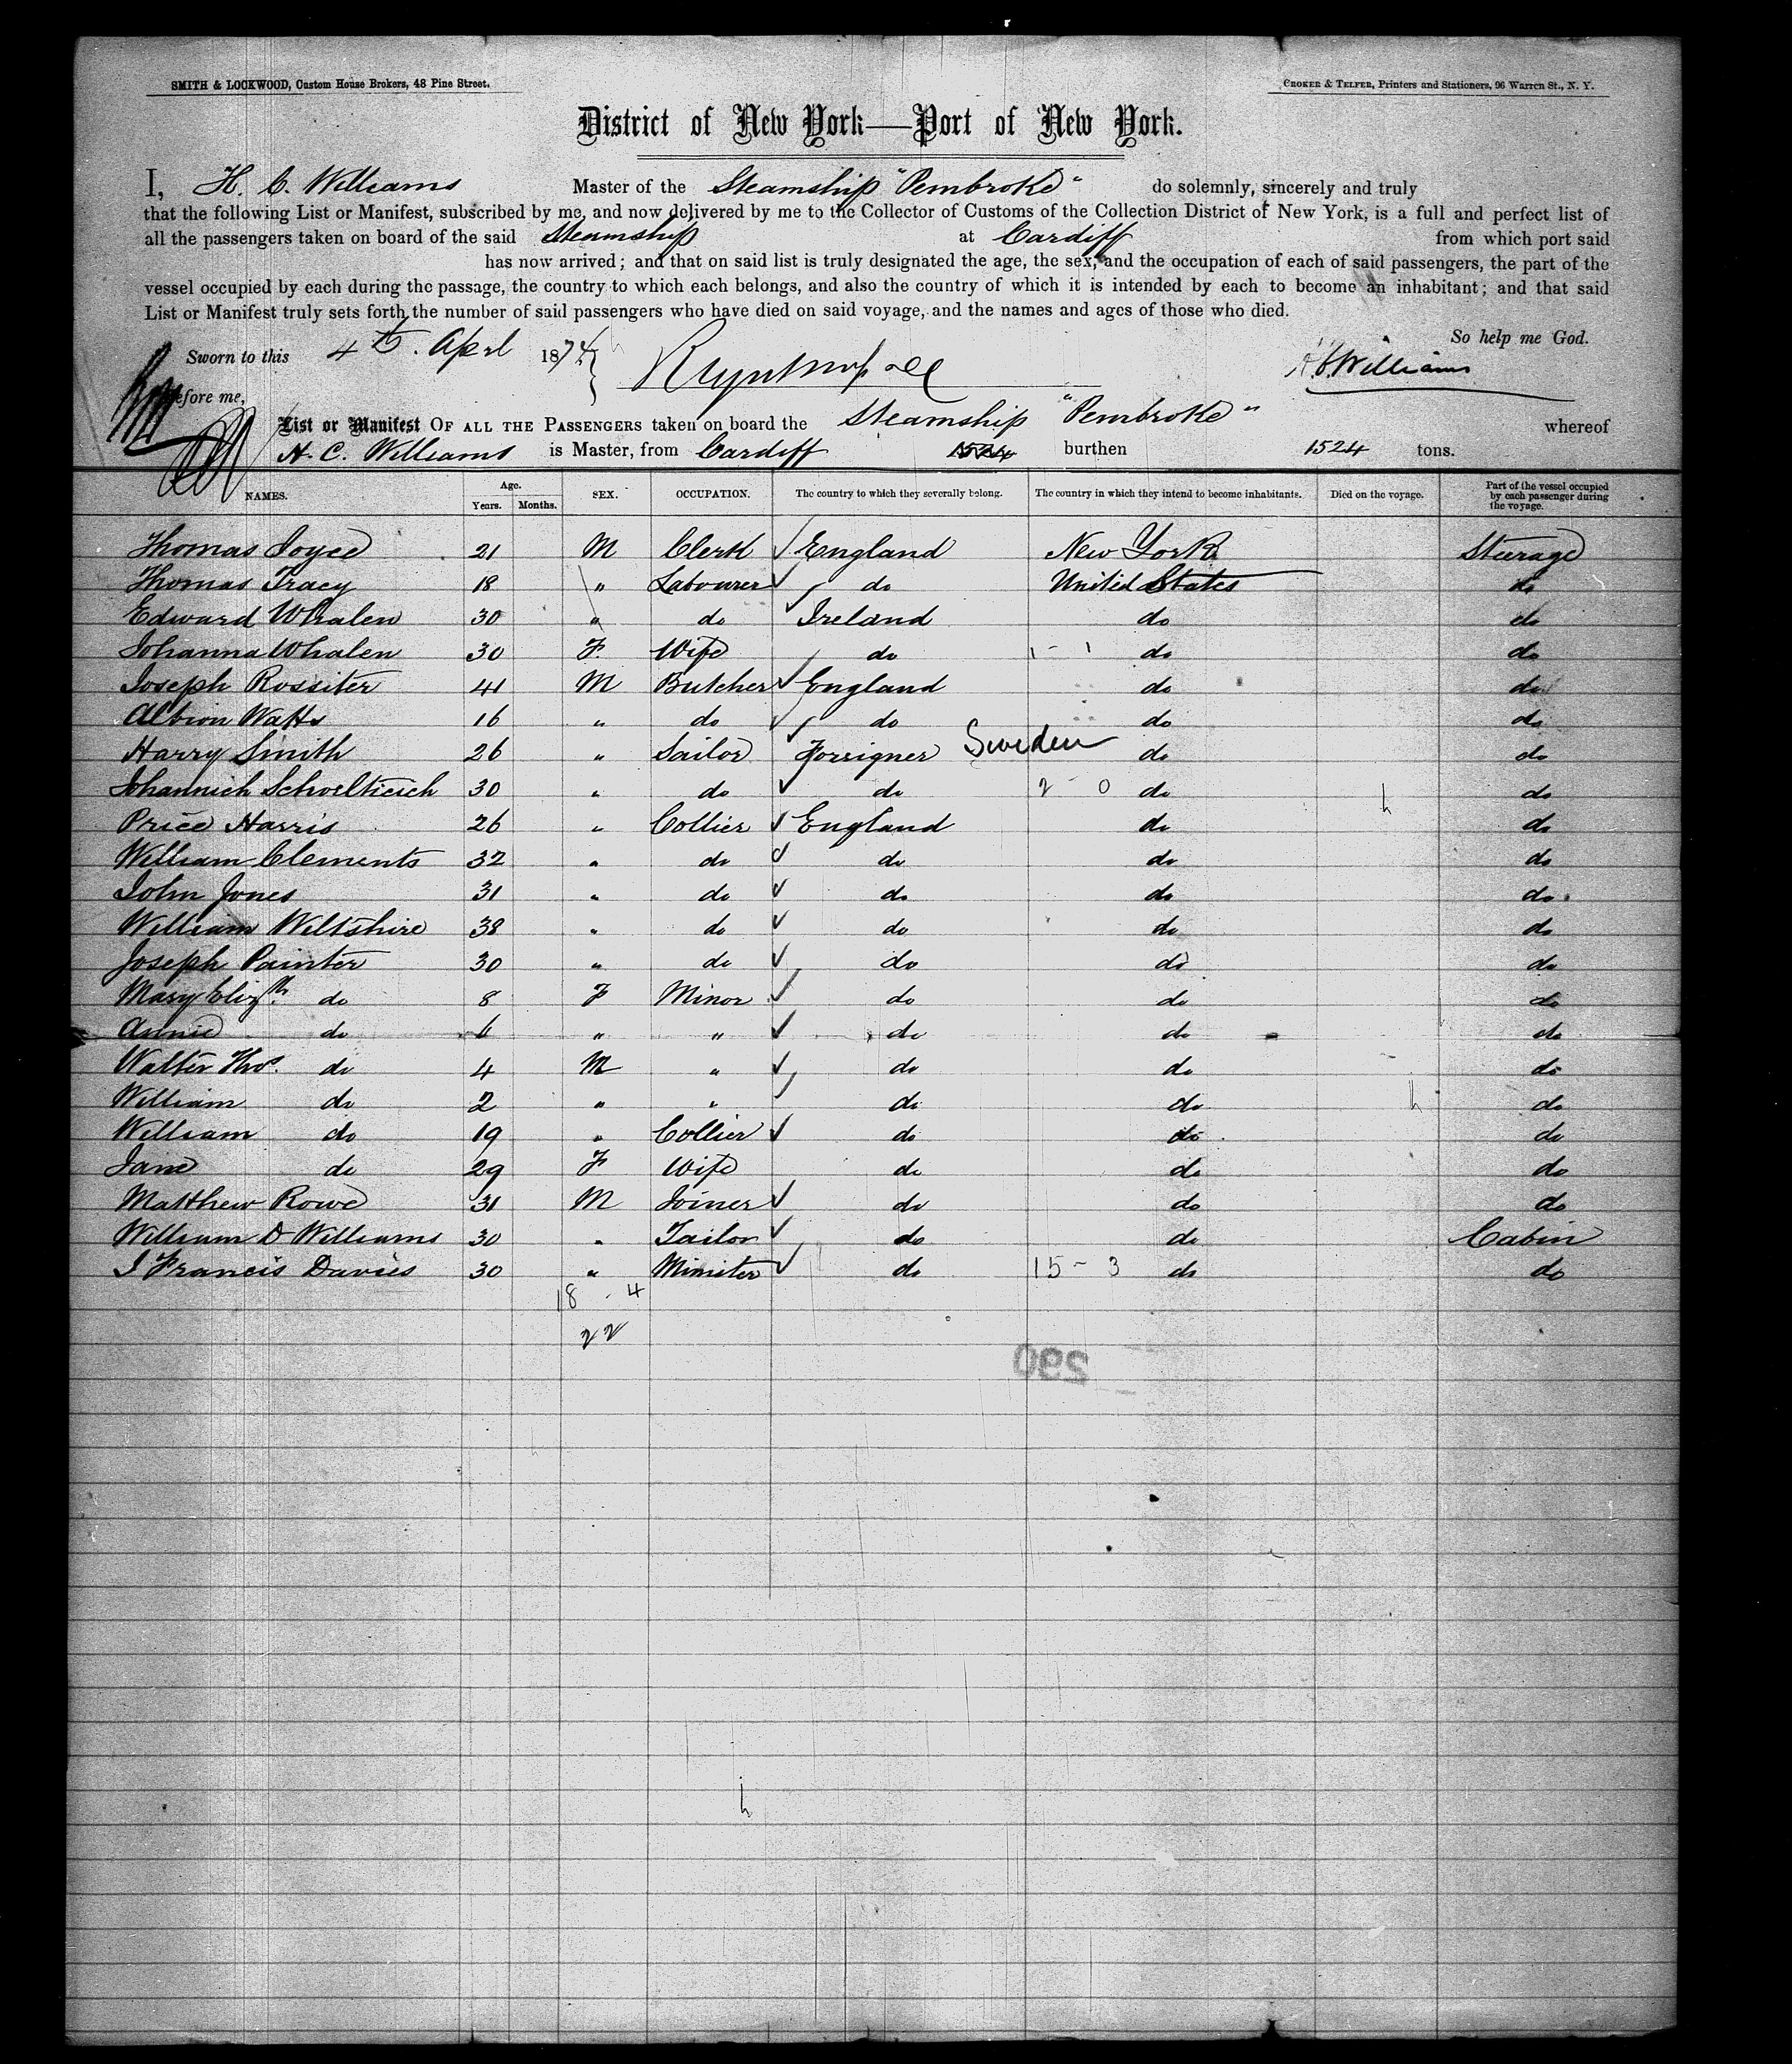 SMITH & LOCKWOOD, Custom House Brokers, 48 Pine Street. CROKER & TELFER, Printers and Stationers, 96 Warren St., N. Y.
District of New York—Port of New York.
I, H. C. Williams Master of the Steamship "Pembroke" do solemnly, sincerely and truly
that the following List or Manifest, subscribed by me, and now delivered by me to the Collector of Customs of the Collection District of New York, is a full and perfect list of
all the passengers taken on board of the said Steamship at Cardiff from which port said
has now arrived; and that on said list is truly designated the age, the sex, and the occupation of each of said passengers, the part of the
vessel occupied by each during the passage, the country to which each belongs, and also the country of which it is intended by each to become an inhabitant; and that said
List or Manifest truly sets forth the number of said passengers who have died on said voyage, and the names and ages of those who died.
So help me God.
Sworn to this 4th. April 1874 H. C. Williams
before me,
List or Manifest OF ALL THE PASSENGERS taken on board the Steamship "Pembroke" whereof
H. C. Williams is Master, from Cardiff 1524 burthen 1524 tons.
NAMES. Age. Years. Months. SEX. OCCUPATION. The country to which they severally belong. The country in which they intend to become inhabitants. Died on the voyage. Part of the vessel occupied by each passenger during the voyage.
Thomas Joyce 21 M Clerk England New York Steerage
Thomas Tracy 18 " Labourer do United States do
Edward Whalen 30 " do Ireland do do
Johanna Whalen 30 F. Wife do 1 - 1 do do
Joseph Rossiter 41 M Butcher England do do
Albion Watts 16 " do do do do
Harry Smith 26 " Sailor Foreigner Sweden do do
Johannich 30 " do do 2 - 0 do do
Price Harris 26 " Collier England do do
William Clements 32 " do do do do
John Jones 31 " do do do do
William Wiltshire 38 " do do do do
Joseph Painter 30 " do do do do
Mary Elizth. do 8 F Minor do do do
Annie do 6 " " do do do
Walter Thos. do 4 M " do do do
William do 2 " " do do do
William do 19 " Collier do do do
Jane do 29 F Wife do do do
Matthew Rowe 31 M Joiner do do do
William D Williams 30 " Tailor do do Cabin
J Francis Davies 30 " Minister do 15 - 3 do do
18 - 4
22
290